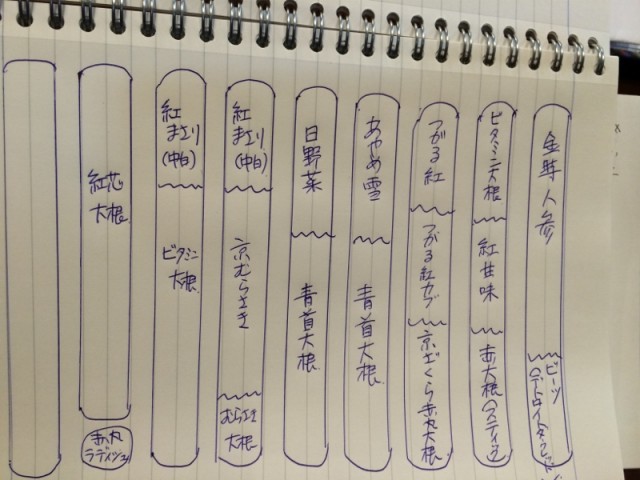 金時人参
ビーツ
(デトロイトダークレッド)
ビタミン大根
紅甘味
赤大根(スティック)
つがる紅
つがる紅カブ
京ざくら赤丸大根
あやめ雪
青首大根
日野菜
青首大根
紅
まさり
(中白)
京むらさき
むらさき
大根
紅
まさり
(中白)
ビタミン
大根
紅芯
大根
赤丸
ラディッシュ